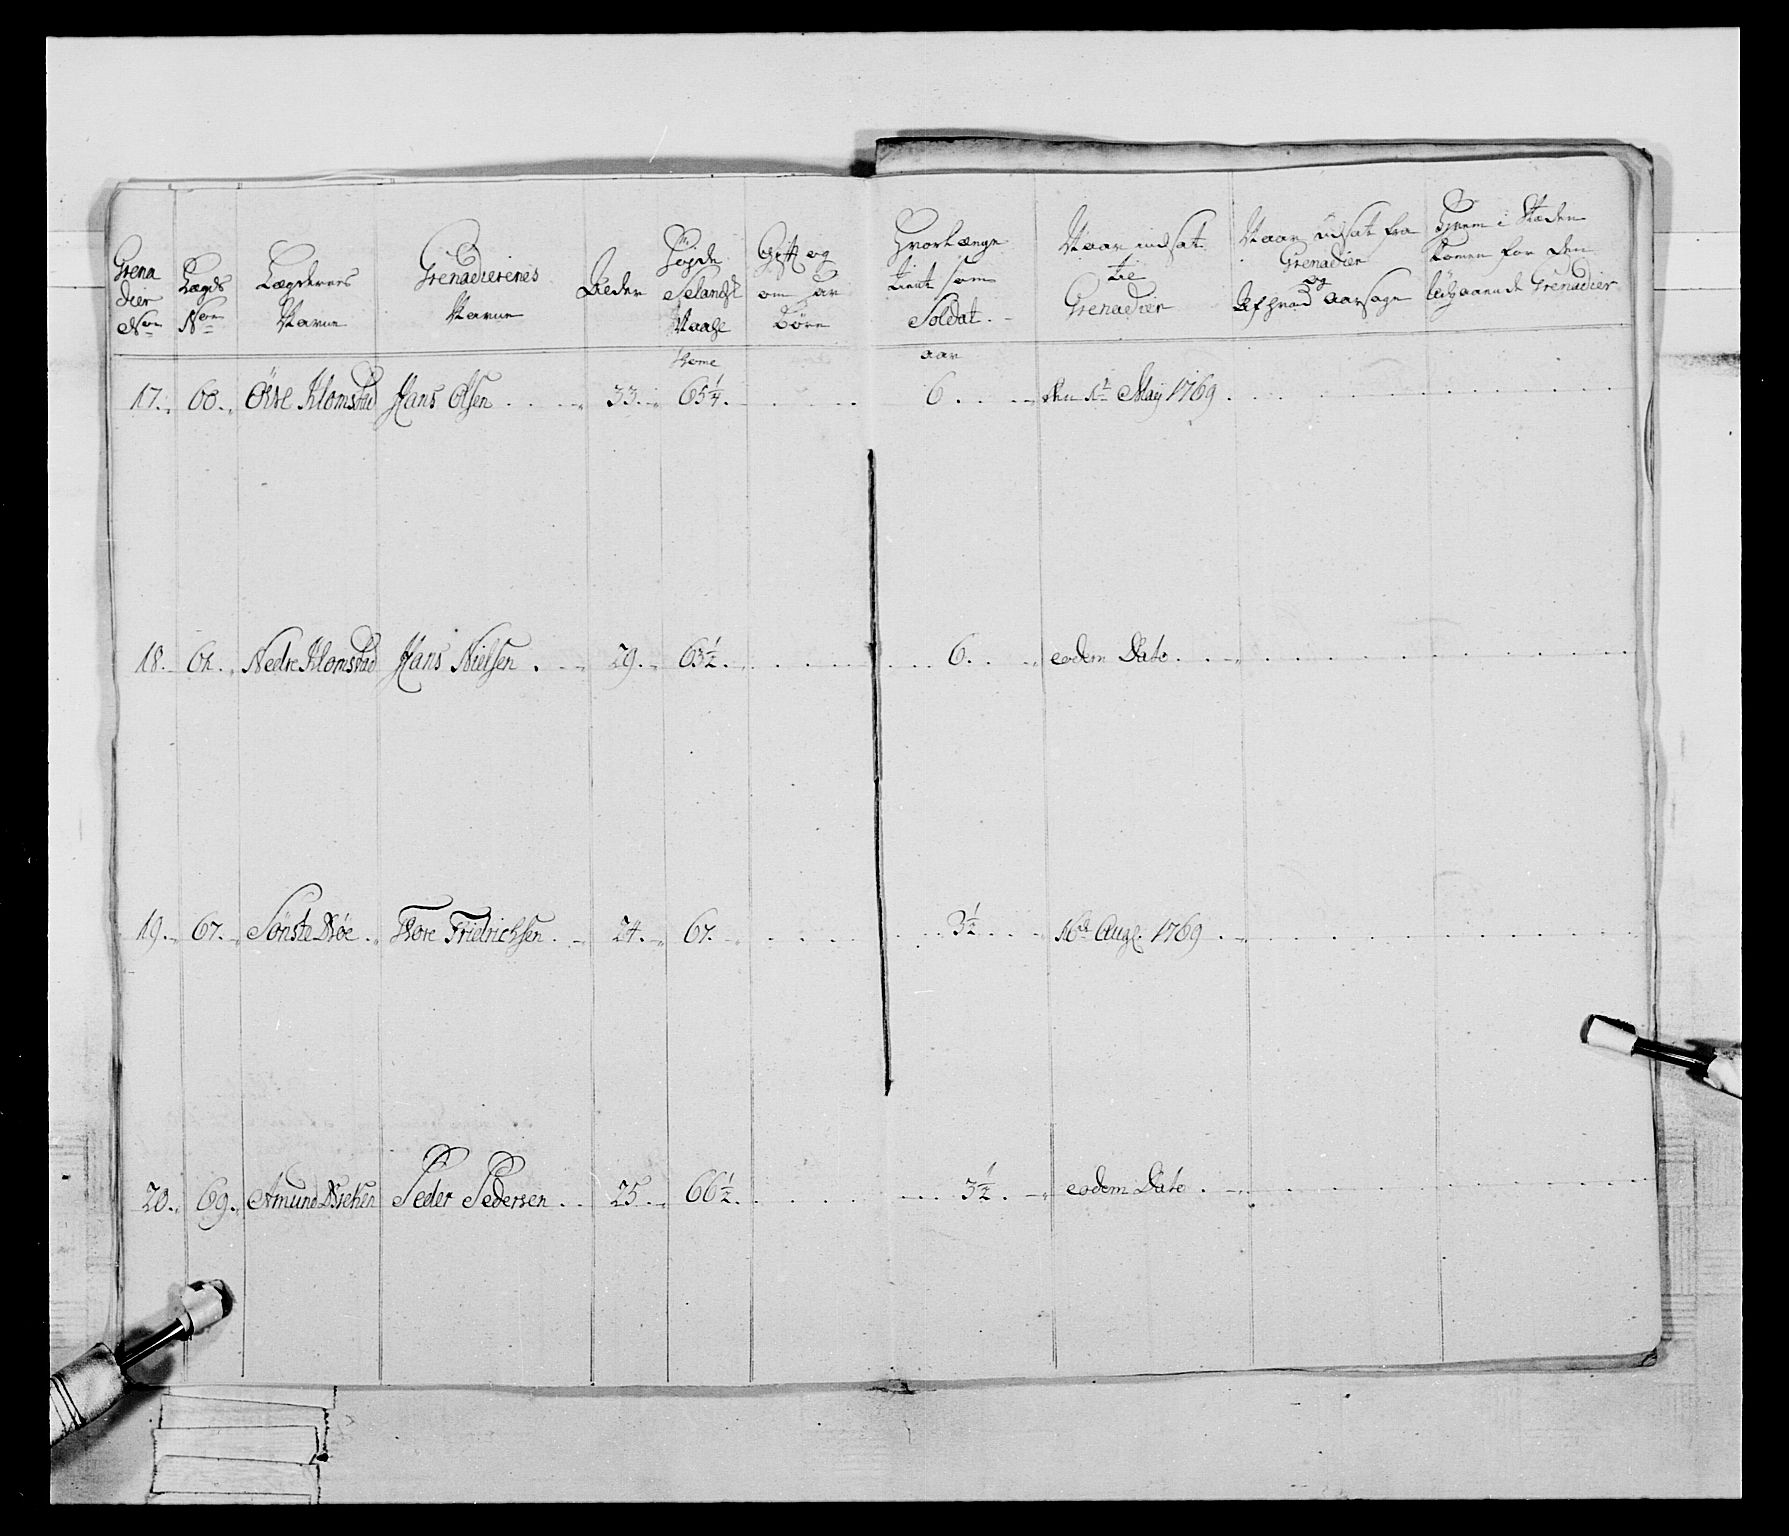 Grena
dier
No
Lægds
No
Lægdernes
Navne
Grenadierenes
Navne
Alder
Höyde
Selandsk
Maahl
Gift og
om har
Börn
Hvorlænge
tient som
Soldat.
Naar indsat
til
Grenadier
Naar udsat fra
Grenadier
og
Af hvad Aarsage
Hvem i Stæden
komen for den
udgaaende Grenadier
tome
aar
17. 60. Öfre Klomstad Hans Olsen 33. 65¼. 6. den 1te May 1769.
18. 61. Nedre Klomstad Hans Nielsen. 29. 63½. 6. eodem Dato.
19. 67. Sönste Bröe. Tore Fridrichsen. 24. 67. 3½. 16de Augl. 1769.
20. 69. Amund Peder Pedersen. 25. 66½. 3½. eodem Dato.